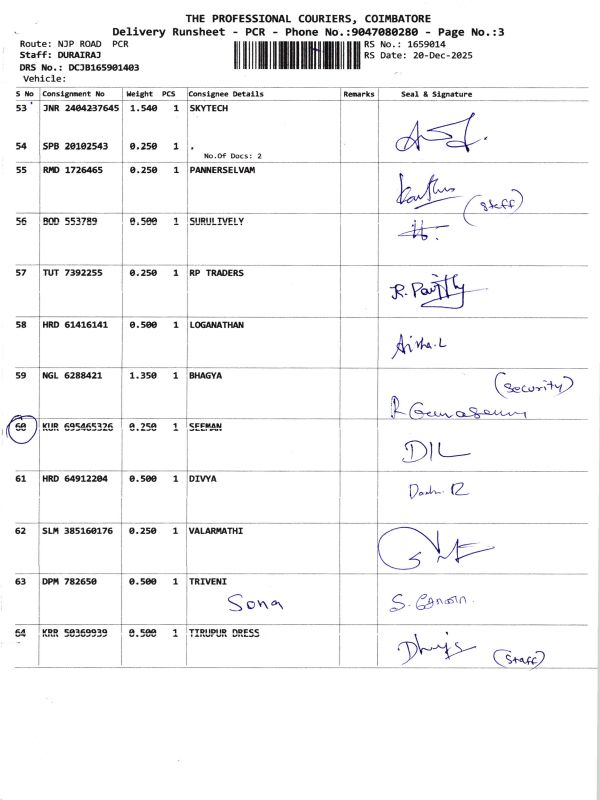 THE PROFESSIONAL COURIERS, COIMBATORE
Delivery Runsheet - PCR - Phone No.:9047080280 - Page No.:3
Route: NJP ROAD PCR RS No.: 1659014
Staff: DURAIRAJ RS Date: 20-Dec-2025
DRS No.: DCJB165901403
Vehicle:
S No Consignment No Weight PCS Consignee Details Remarks Seal & Signature
53 JNR 2404237645 1.540 1 SKYTECH
54 SPB 20102543 0.250 1 .
No.Of Docs: 2
55 RMD 1726465 0.250 1 PANNERSELVAM
(staff)
56 BOD 553789 0.500 1 SURULIVELY
57 TUT 7392255 0.250 1 RP TRADERS
58 HRD 61416141 0.500 1 LOGANATHAN
59 NGL 6288421 1.350 1 BHAGYA
(security)
60 KUR 695465326 0.250 1 SEEMAN
61 HRD 64912204 0.500 1 DIVYA
62 SLM 385160176 0.250 1 VALARMATHI
63 DPM 782650 0.500 1 TRIVENI
Sona
64 KRR 50369939 0.500 1 TIRUPUR DRESS
(staff)